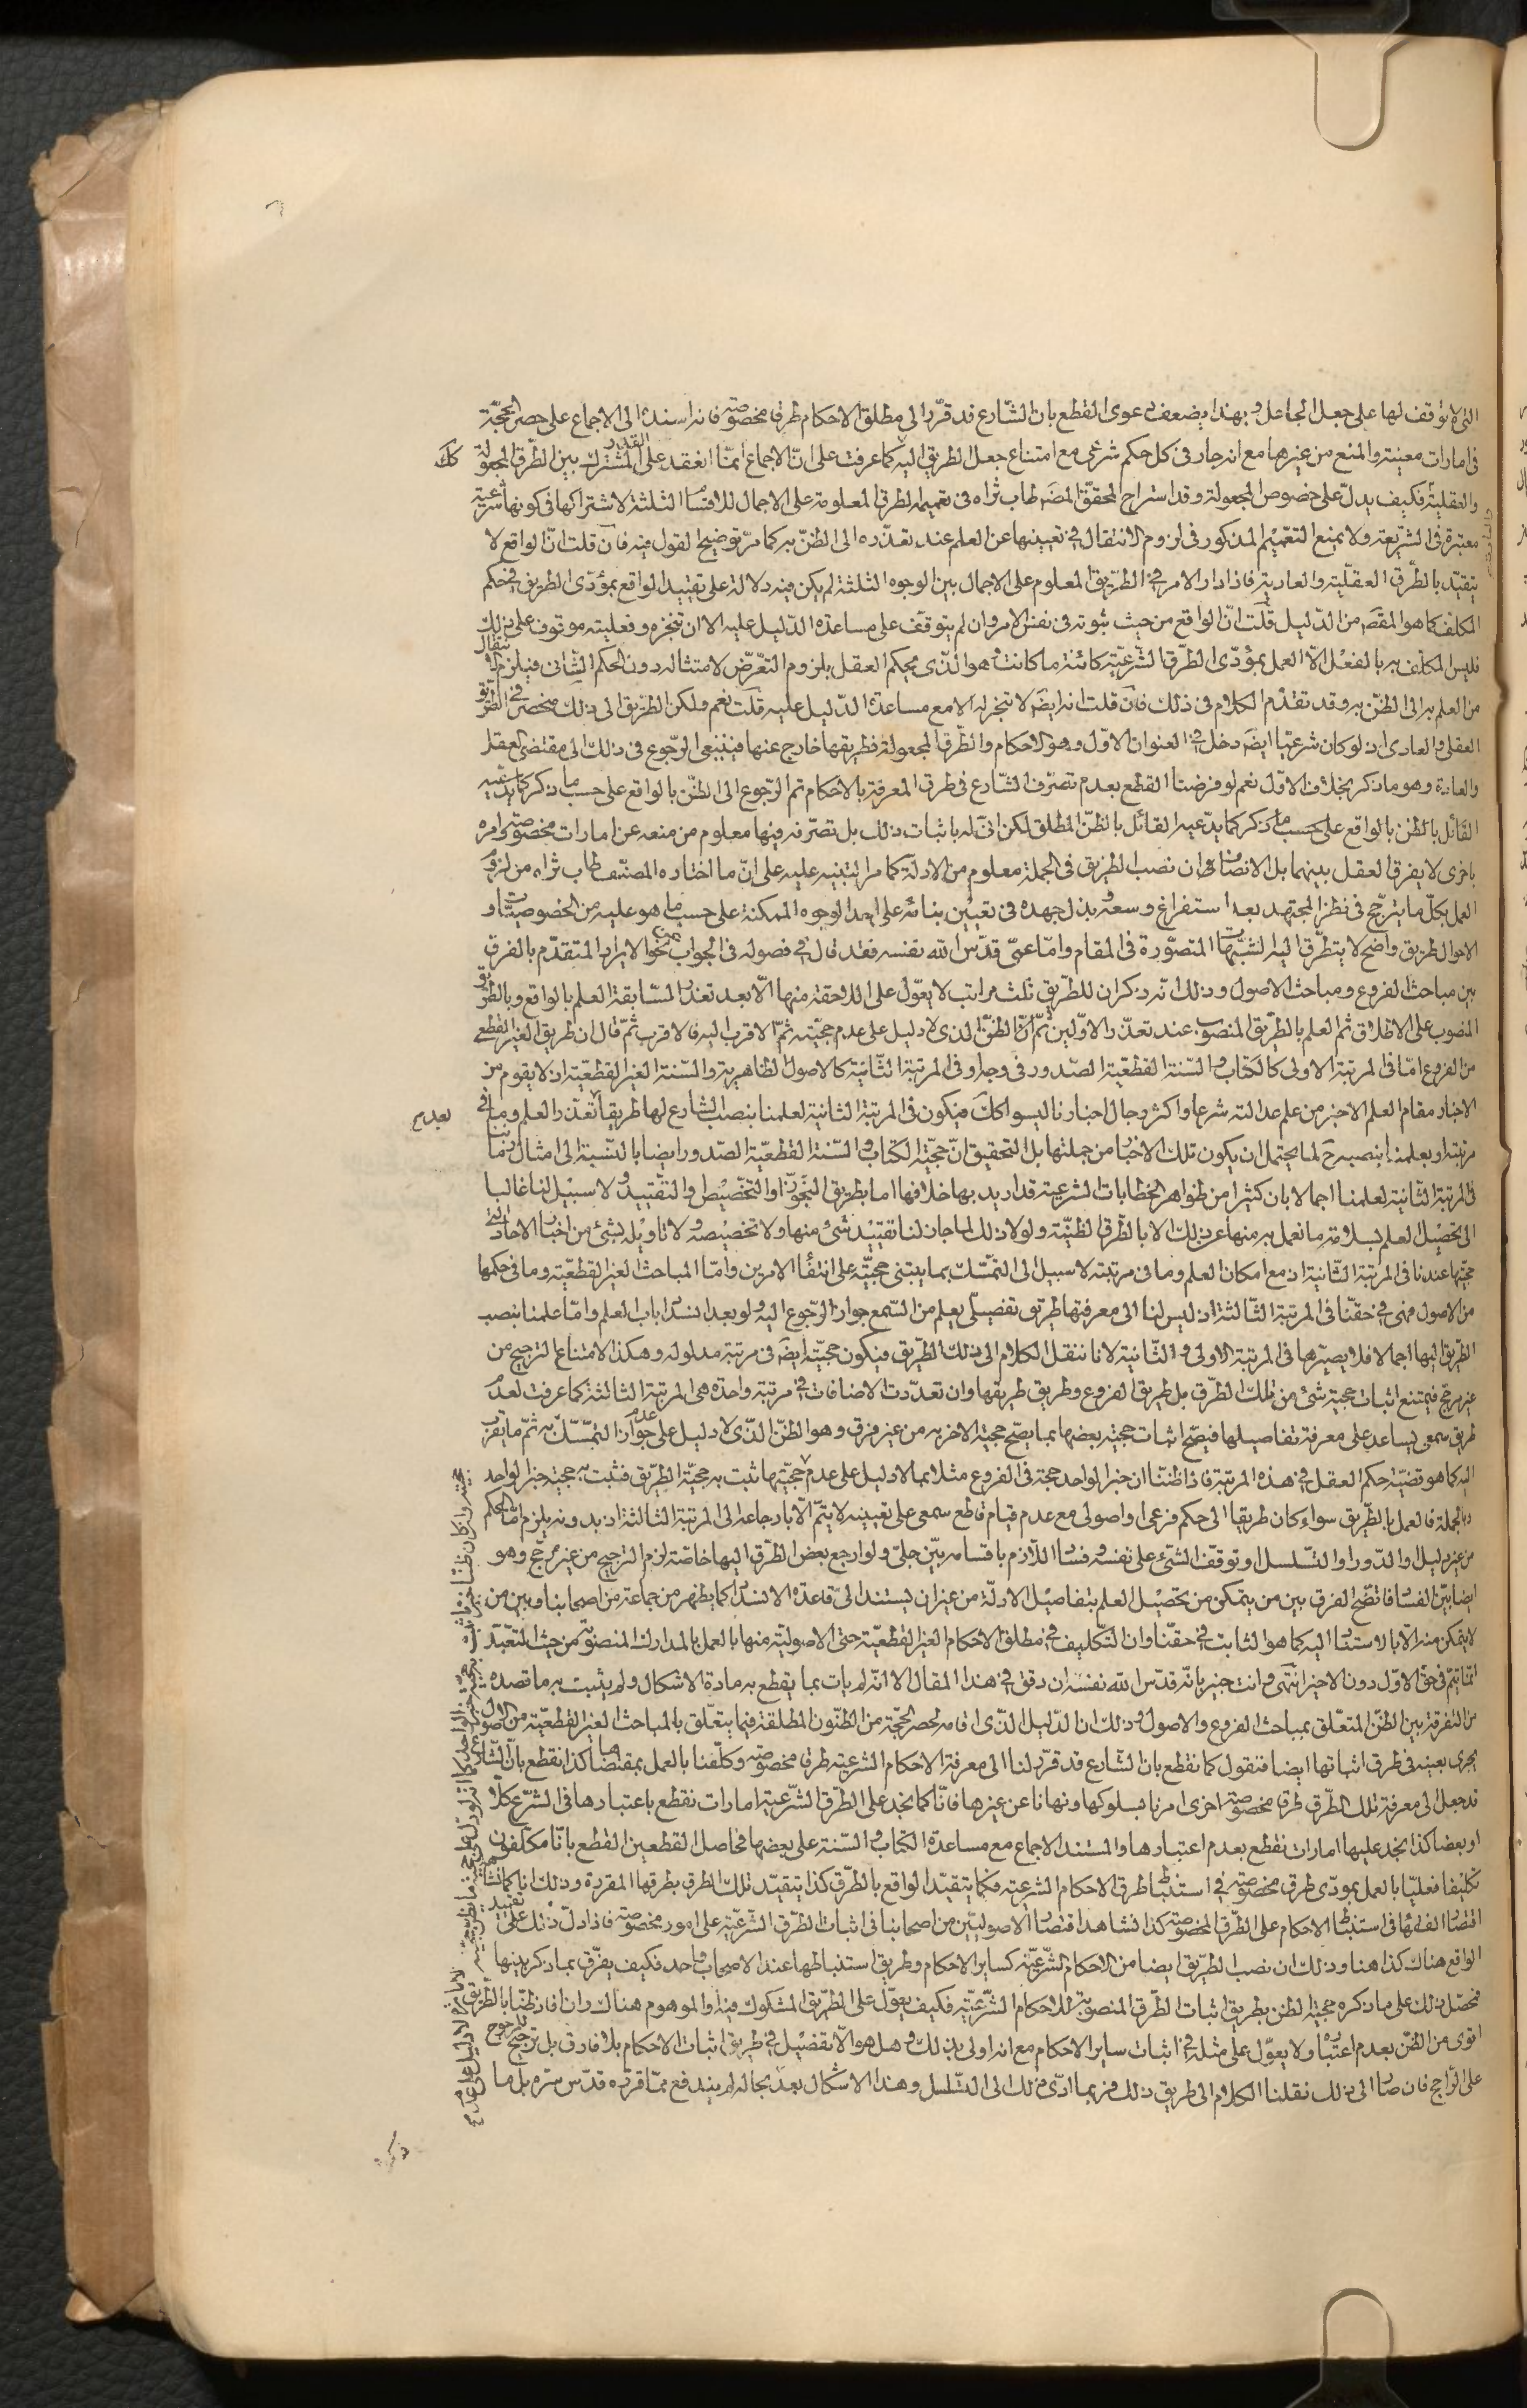 التى لا توقف لها على جعل الجاعل و بهذا يضعف دعوى القطع بان الشارع قد قرّر الى مطلق الاحكام طرقا مخصوصة فانه اسنده الى الاجماع على حصر الحجّة
فى امارات معينة و المنع من غيرها مع انه جار فى كل حكم شرعى مع امتناع جعل الطريق اليه كما عرفت على انّ الاجماع انّما انعقد على القدر المشترك بين الطّرق المجعولة
و العقلية فكيف يدلّ على خصوص المجعولة و قد استراح المحقق المصّ طاب ثراه فى تعميمه الطرق المعلومة على الاجمال للاقسام الثلثة لاشتراكها فى كونها شرعية
معتبرة فى الشريعة و لا يمنع التعميم المذكور فى لزوم الانتقال فى تعيينها عن العلم عند تعذّره الى الظنّ به كما مرّ توضيح القول فيه فان قلت انّ الواقع لا
يتقيّد بالطّرق العقليّة و العادية فاذا دار الامر فى الطّريق المعلوم على الاجمال بين الوجوه الثلثة لم يكن فيه دلالة على تقييد الواقع بمؤدّى الطريق فى حكم
المكلف كما هو المقصّ من الدّليل قلت انّ الواقع من حيث ثبوته فى نفس الامر و ان لم يتوقّف على مساعدة الدّليل عليه الا ان تنجزه و فعليته موقوف على ذلك
فليس المكلّف به بالفعل الّا العمل بمؤدّى الطّرق الشّرعيّة كائنة ما كانت و هو الّذى يحكم العقل بلزوم التعرّض لامتثاله دون الحكم الشّانى فيلزم الانتقال
من العلم به الى الظنّ به و قد تقدّم الكلام فى ذلك فان قلت انه ايضّ لا تنجز له الا مع مساعدة الدّليل عليه قلت نعم و لكن الطّريق الى ذلك منحصر فى الطّريق
العقلى و العادى اذ لو كان شرعيّا ايضّ دخل فى العنوان الاوّل و هو الاحكام و الطّرق المجعولة فطريقها خارج عنها فينبغى الرّجوع فى ذلك الى مقتضى العقل
و العادة و هو ما ذكر بخلاف الاوّل نعم لو فرضنا القطع بعدم تصرّف الشّارع فى طرق المعرفة بالاحكام تم الرّجوع الى الظنّ بالواقع على حسب ما ذكر كما يدّعيه
القائل بالظن بالواقع على حسب ما ذكر كما يدّعيه القائل بالظنّ المطلق لكن انّى له باثبات ذلك بل تصرّفه فيها معلوم من منعه عن امارات مخصوصة و امره
باخرى لا يفرق العقل بينهما بل الانصاف ان نصب الطريق فى الجملة معلوم من الادلة كما مر التنبيه عليه على انّ ما اختاره المصنّف طاب ثراه من لزوم
العمل بكلّ ما يترجّح فى نظر المجتهد بعد استفراغ وسعه و بذل جهده فى تعيين بنائه على احد الوجوه الممكنة على حسب ما هو عليه من الخصوصيّات و
الاحوال طريق واضح لا يتطرّق اليه الشّبهات المتصوّرة فى المقام و امّا عمّى قدّس الله نفسه فقد قال فى فصوله فى الجواب عن نحو الايراد المتقدّم بالفرق
بين مباحث الفروع و مباحث الاصول و ذلك انّه ذكر ان للطّريق ثلث مراتب لا يعوّل على اللاحقة منها الّا بعد تعذر السّابقة العلم بالواقع و بالطّريق
المنصوب على الاطلاق ثم العلم بالطّريق المنصوب عند تعذّر الاوّلين ثمّ الظنّ الذى لا دليل على عدم حجيّته ثمّ الاقرب اليه فالاقرب ثمّ قال ان طريق الغير القطعى
من الفروع امّا فى المرتبة الاولى كالكتاب و السّنة القطعيّة الصّدور فى وجه او فى المرتبة الثّانية كالاصول الظاهرية و السّنة الغير القطعيّة اذ لا يقوم من
الاخبار مقام العلم الا خبر من علم عدالته شرعا و اكثر رجال اخبارنا ليسوا كك فيكون فى المرتبة الثانية لعلمنا بنصب الشارع لها طريقا بعد تعذّر العلم و ما فى
مرتبته او بعلمنا بنصبه ح لما يحتمل ان يكون تلك الاخبار من جملتها بل التحقيق انّ حجيّة الكتاب و السّنة القطعيّة الصّدور ايضا بالنّسبة الى امثال زماننا
فى المرتبة الثّانية لعلمنا اجمالا بان كثيرا من ظواهر الخطابات الشرعية قد اريد بها خلافها اما بطريق التجوّز او التّخصيص و التقييد و لا سبيل لنا غالبا
الى تحصيل العلم بسلامة ما نعمل به منها عن ذلك الا بالطّرق الظنيّة و لولا ذلك لما جاز لنا تقييد شئ منها و لا تخصيصه و لا تاويله بشئ من اخبار الاحاد التى
حجيّتها عندنا فى المرتبة الثّانية اذ مع امكان العلم و ما فى مرتبته لا سبيل الى التمسّك بما يبتنى حجيّته على انتفاء الامرين و امّا المباحث الغير القطعيّة و ما فى حكمها
من الاصول فهى فى حقّنا فى المرتبة الثّالثة اذ ليس لنا الى معرفتها طريق تفصيلى يعلم من السّمع جواز الرّجوع اليه و لو بعد انسداد باب العلم و امّا علمنا بنصب
الطّريق اليها اجمالا فلا يصيّرها فى المرتبة الاولى و الثّانية لانا ننقل الكلام الى ذلك الطّريق فيكون حجيّته ايضّ فى مرتبة مدلوله و هكذا لامتناع الترجيح من
غير مرجّح فيمتنع اثبات حجية شئ من تلك الطّرق بل طريق الفروع و طريق طريقها و ان تعدّدت الاضافات فى مرتبة واحدة هى المرتبة الثالثة كما عرفت لعدم
طريق سمعى يساعد على معرفة تفاصيلها فيصّح اثبات حجيّة بعضها بما يصّح حجية الاخر به من غير فرق و هو الظنّ الّذى لا دليل على عدم جواز التمسّك به ثمّ ما يقرب
اليه كما هو قضيّة حكم العقل فى هذه المرتبة فاذا ظننّا ان خبر الواحد حجة فى الفروع مثلا بما لا دليل على عدم حجيّتها ثبت به حجيّة الطّريق فثبت به حجية خبر الواحد
و بالجملة فالعمل بالطّريق سواء كان طريقا الى حكم فرعى او اصولى مع عدم قيام قاطع سمعى على تعيينه لا يتمّ الّا بارجاعه الى المرتبة الثالثة اذ بدونه يلزم امّا الحكم
من غير دليل او الدّور او التّسلسل او توقّف الشّئ على نفسه و فساد اللّازم باقسامه بيّن جلىّ و لو ارجع بعض الطّرق اليها خاصّة لزم الترجيح من غير مرجّح و هو
ايضا بيّن الفساد فاتضح الفرق بين من يتمكن من تحصيل العلم بتفاصيل الادلّة من غير ان يستند الى قاعدة الانسداد كما يظهر من جماعة من اصحابنا و بين من
لا يتمكن منه الّا بالاستناد اليه كما هو الثابت فى حقّنا و ان التّكليف فى مطلق الاحكام الغير القطعيّة حتى الاصوليّة منها بالعمل بالمدارك المنصوبة من حيث التعبّد
انّما يتمّ فى حق الاوّل دون الاخير انتهى و انت خبير بانّه قدّس الله نفسه ان دقق فى هذا المقال الا انّه لم يات بما يقطع به مادة الاشكال و لم يثبت به ما قصده
من التفرقة بين الظنّ المتعلّق بمباحث الفروع و الاصول و ذلك ان الدّليل الّذى اقامه لحصر الحجّة من الظّنون المطلقة فيما يتعلّق بالمباحث الغير القطعيّة من الاصول
يجرى بعينه فى طرق اثباتها ايضا فنقول كما نقطع بان الشّارع قد قرّر لنا الى معرفة الاحكام الشرعية طرقا مخصوصة و كلّفنا بالعمل بمقتضاها كذا نقطع بانّ الشّارع
قد جعل الى معرفة تلك الطّرق طرقا مخصوصة اخرى امرنا بسلوكها و نهانا عن غيرها فانّا كما نجد على الطّرق الشّرعية امارات نقطع باعتبارها فى الشّرع كلّا
او بعضا كذا نجد عليها امارات نقطع بعدم اعتبارها و المستند الاجماع مع مساعدة الكتاب و السّنة على بعضها فحاصل القطعين القطع بانّا مكلّفون
تكليفا فعليّا بالعمل بمودّى طرق مخصوصة فى استنباط طرق الاحكام الشرعية فكما يتقيّد الواقع بالطّرق كذا يتقيّد تلك الطرق بطرقها المقررة و ذلك انا كما نشاهد
اقتصار الفقهاء فى استنباط الاحكام على الطّرق المخصوصة كذا نشاهد اقتصار الاصوليّين من اصحابنا فى اثبات الطّرق الشّرعيّة على امور مخصوصة فاذا دلّ ذلك على تقييد
الواقع هناك كذا هنا و ذلك ان نصب الطّريق ايضا من الاحكام الشّرعيّة كسائر الاحكام و طريق استنباطها عند الاصحاب واحد فكيف يفرّق بما ذكر بينها
فحصّل ذلك على ما ذكره حجية الظن بطريق اثبات الطّرق المنصوبة للاحكام الشّرعيّة فكيف يعوّل على الطّريق المشكوك فيه او الموهوم هناك
اقوى من الظنّ بعدم اعتباره و لا يعوّل على مثله فى اثبات سائر الاحكام مع انه اولى بذلك و هل هو الّا تفصيل فى طريق اثبات الاحكام بلا فارق بل ترجيح للمرجوح
على الرّاجح فان صار الى ذلك نقلنا الكلام الى طريق ذلك فربما ادّى ذلك الى التّسلسل و هذا الاشكال بعد بحاله لم يندفع ممّا قرّره قدّس سرّه بل ما